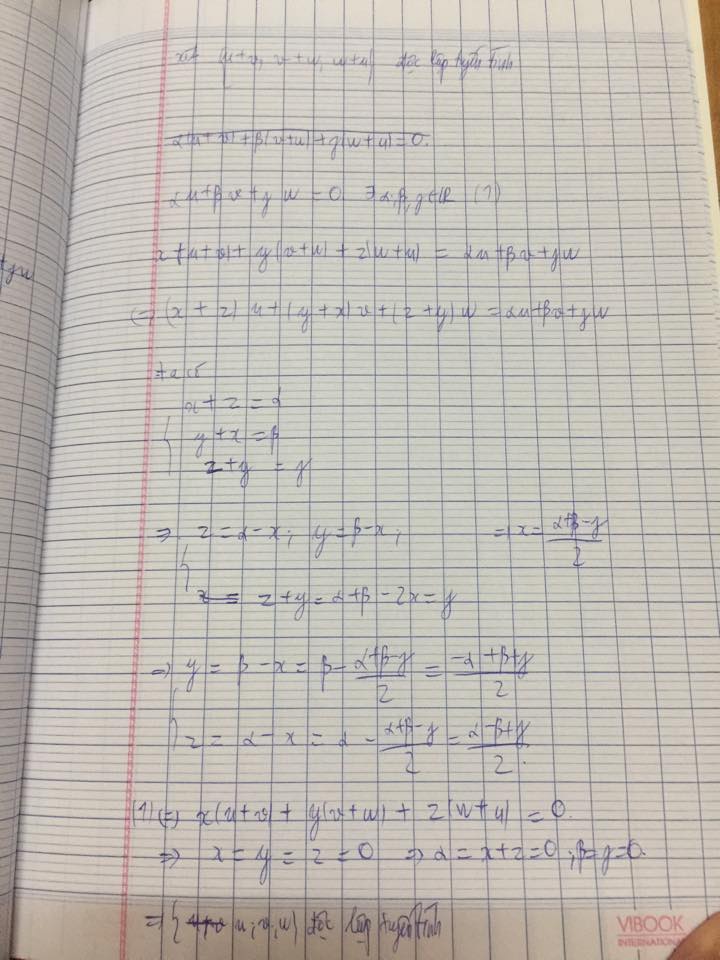 xét {u+v, v+w, w+u} độc lập tuyến tính
α(u+v)+β(v+w)+γ(w+u)=0.
αu+βv+γw=0 ∃α,β,γ∈ℝ (1)
x(u+v)+y(v+w)+z(w+u)=αu+βv+γw
(=) (x+z)u+(y+x)v+(z+y)w=αu+βv+γw
ta có
x+z=α
y+x=β
z+y=γ
=> z=α-x; y=β-x; => x=(α+β-γ)/2
z+y=α+β-2x=γ
=> y=β-x=β-(α+β-γ)/2=(-α+β+γ)/2
z=α-x=α-(α+β-γ)/2=(α-β+γ)/2.
(1) (=) x(u+v)+y(v+w)+z(w+u)=0.
=> x=y=z=0 => α=x+z=0; β=γ=0.
=> {u,v,w} độc lập tuyến tính
VIBOOK
INTERNATIONAL